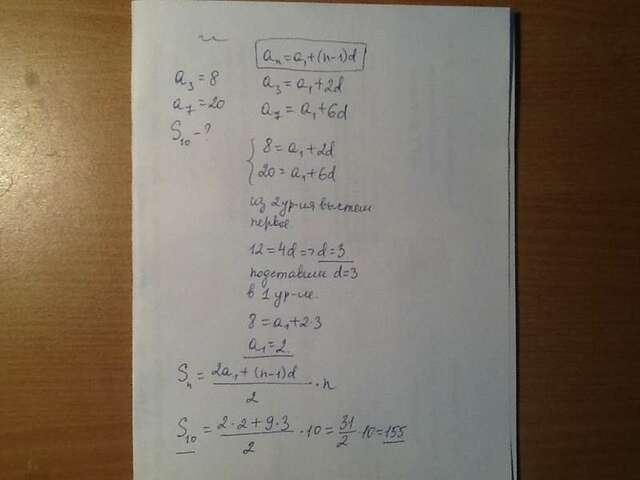 aₙ = a₁ + (n-1)d
a₃ = 8
a₃ = a₁ + 2d
a₇ = 20
a₇ = a₁ + 6d
S₁₀ - ?
8 = a₁ + 2d
20 = a₁ + 6d
из 2 ур-ия вычтем
первое.
12 = 4d => d = 3
подставим d=3
в 1 ур-ие.
8 = a₁ + 2·3
a₁ = 2.
Sₙ = (2a₁ + (n-1)d)/2 · n
S₁₀ = (2·2 + 9·3)/2 · 10 = 31/2 · 10 = 155